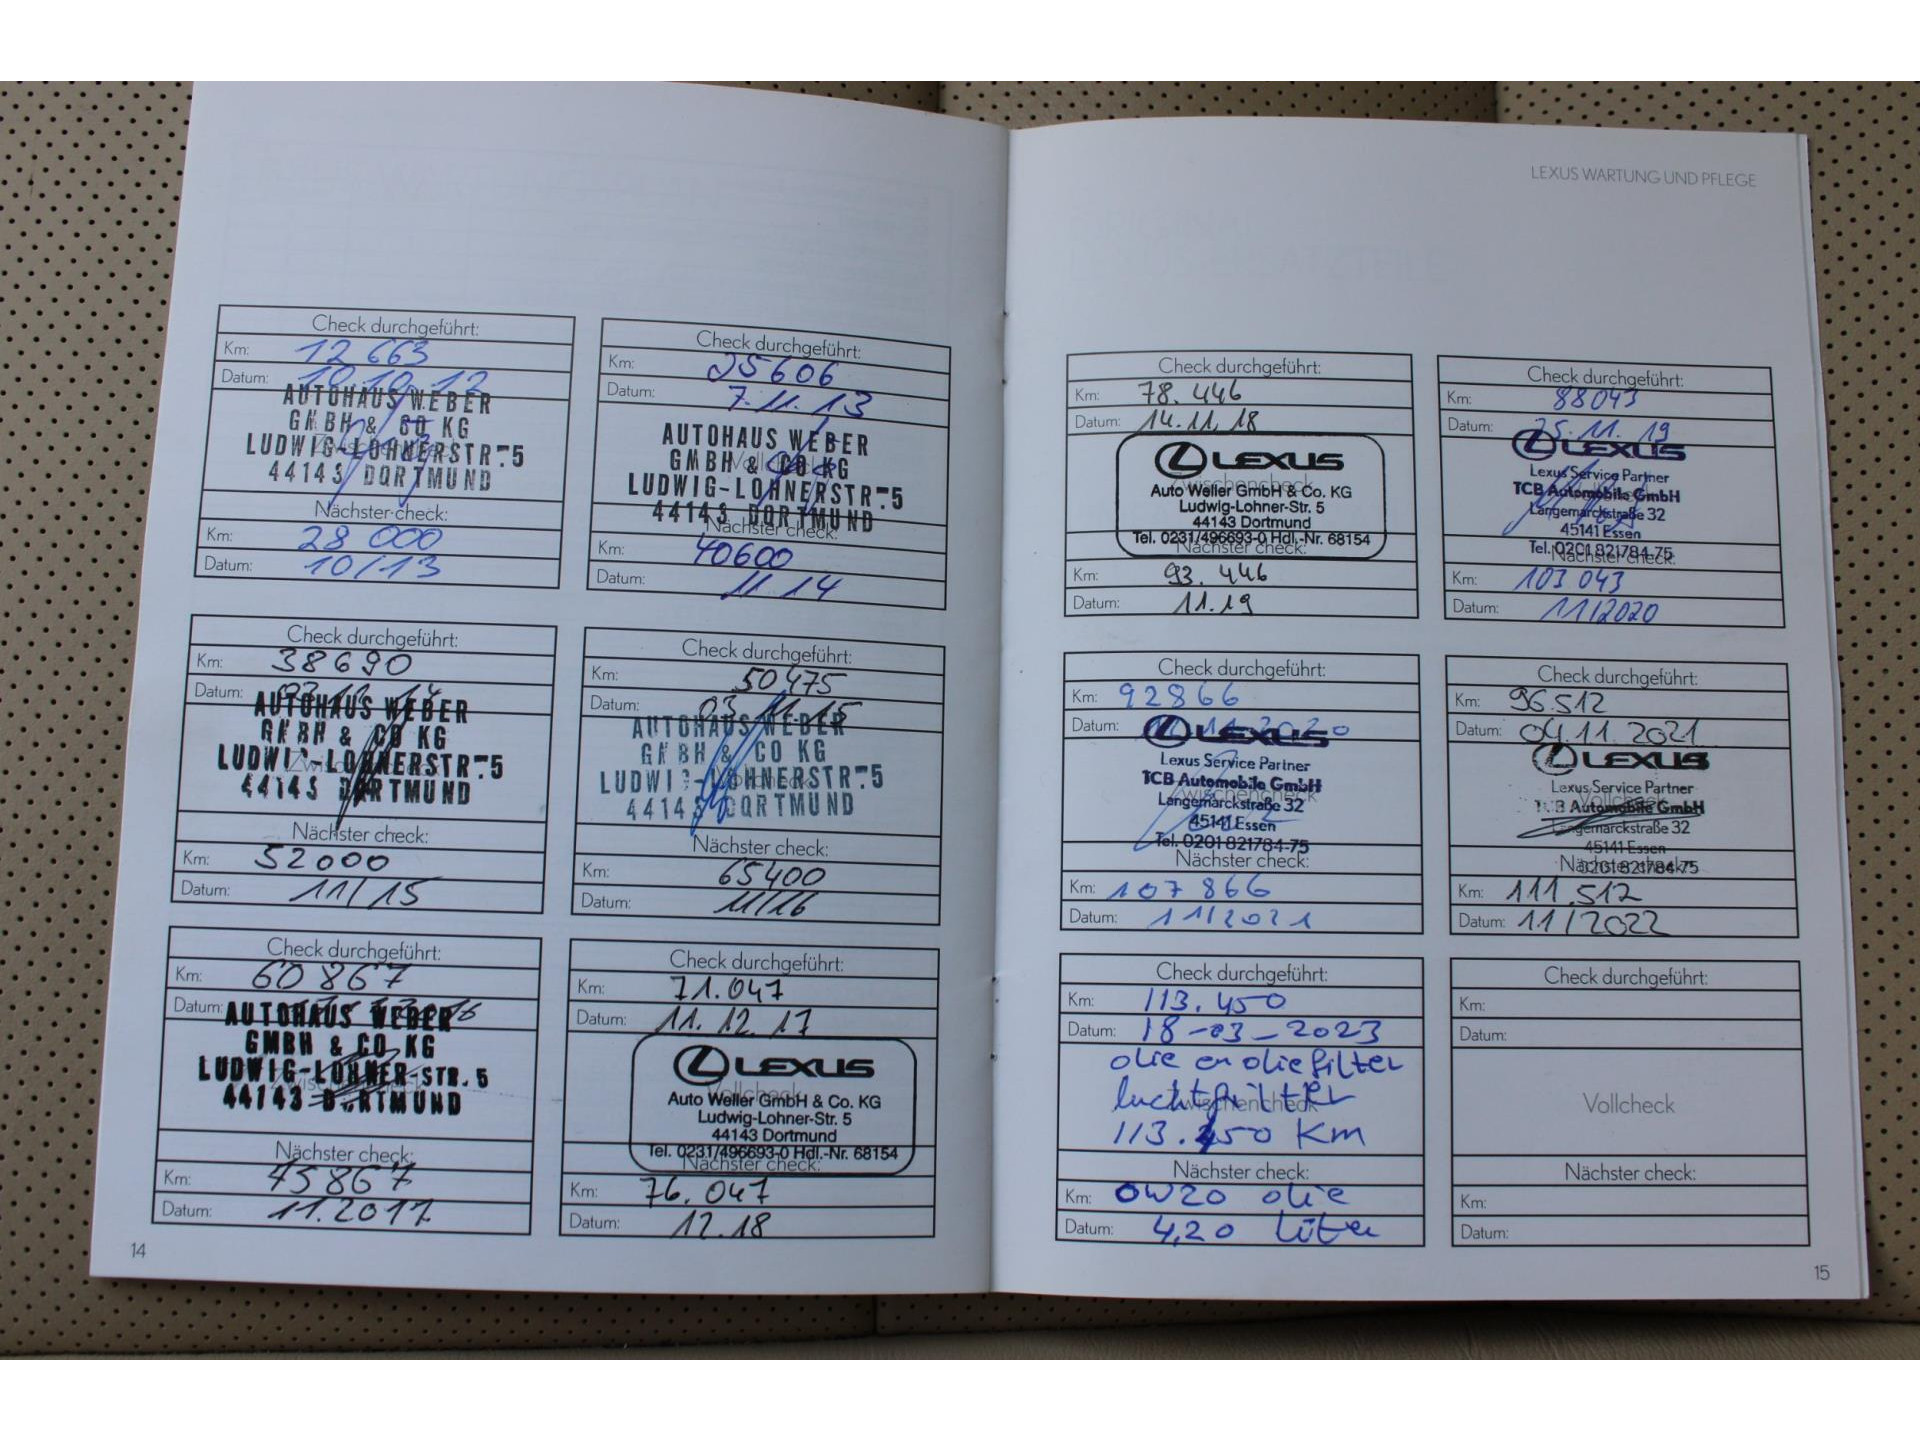 LEXUS WARTUNG UND PFLEGE
Check durchgeführt:
Km: 12 663
Datum: 10.10.12
AUTOHAUS WEBER
GMBH & CO KG
LUDWIG-LOHNERSTR-5
44143 DORTMUND
Zwischencheck
Nächster check:
Km: 28 000
Datum: 10/13
Check durchgeführt:
Km: 25606
Datum: 7.11.13
AUTOHAUS WEBER
GMBH & CO KG
Vollcheck
LUDWIG-LOHNERSTR-5
44143 DORTMUND
Nächster check:
Km: 40600
Datum: 11.14
Check durchgeführt:
Km: 38690
Datum: 03 11 14
AUTOHAUS WEBER
GMBH & CO KG
LUDWIG-LOHNERSTR-5
Zwischencheck
44143 DORTMUND
Nächster check:
Km: 52000
Datum: 11/15
Check durchgeführt:
Km: 50475
Datum: 03.11.15
AUTOHAUS WEBER
GMBH & CO KG
LUDWIG-LOHNERSTR-5
Vollcheck
44143 DORTMUND
Nächster check:
Km: 65400
Datum: 11/16
Check durchgeführt:
Km: 60867
Datum:
AUTOHAUS WEBER
GMBH & CO KG
LUDWIG-LOHNER-STR.5
Zwischencheck
44143 DORTMUND
Nächster check:
Km: 75867
Datum: 11.2017
Check durchgeführt:
Km: 71.047
Datum: 11.12.17
LEXUS
Vollcheck
Auto Weller GmbH & Co. KG
Ludwig-Lohner-Str. 5
44143 Dortmund
Tel. 0231/496693-0 Hdl.-Nr. 68154
Nächster check:
Km: 76.047
Datum: 12.18
14
Check durchgeführt:
Km: 78.446
Datum: 14.11.18
LEXUS
Zwischencheck
Auto Weller GmbH & Co. KG
Ludwig-Lohner-Str. 5
44143 Dortmund
Tel. 0231/496693-0 Hdl.-Nr. 68154
Nächster check:
Km: 93.446
Datum: 11.19
Check durchgeführt:
Km: 88043
Datum: 25.11.19
LEXUS
Lexus Service Partner
TCB Automobile GmbH
Langemarckstraße 32
45141 Essen
Tel. 0201 821784-75
Nächster check:
Km: 103 043
Datum: 11/2020
Check durchgeführt:
Km: 92866
Datum: 11 2020
LEXUS
Lexus Service Partner
TCB Automobile GmbH
Zwischencheck
Langemarckstraße 32
45141 Essen
Tel. 0201 821784-75
Nächster check:
Km: 107 866
Datum: 11/2021
Check durchgeführt:
Km: 96.512
Datum: 04.11.2021
LEXUS
Lexus Service Partner
Vollcheck
TCB Automobile GmbH
Langemarckstraße 32
45141 Essen
0201 821784-75
Nächster check:
Km: 111.512
Datum: 11/2022
Check durchgeführt:
Km: 113.450
Datum: 18-03-2023
olie en oliefilter
luchtfilter
Zwischencheck
113.450 Km
Nächster check:
Km: 0W20 olie
Datum: 4,20 liter
Check durchgeführt:
Km:
Datum:
Vollcheck
Nächster check:
Km:
Datum:
15